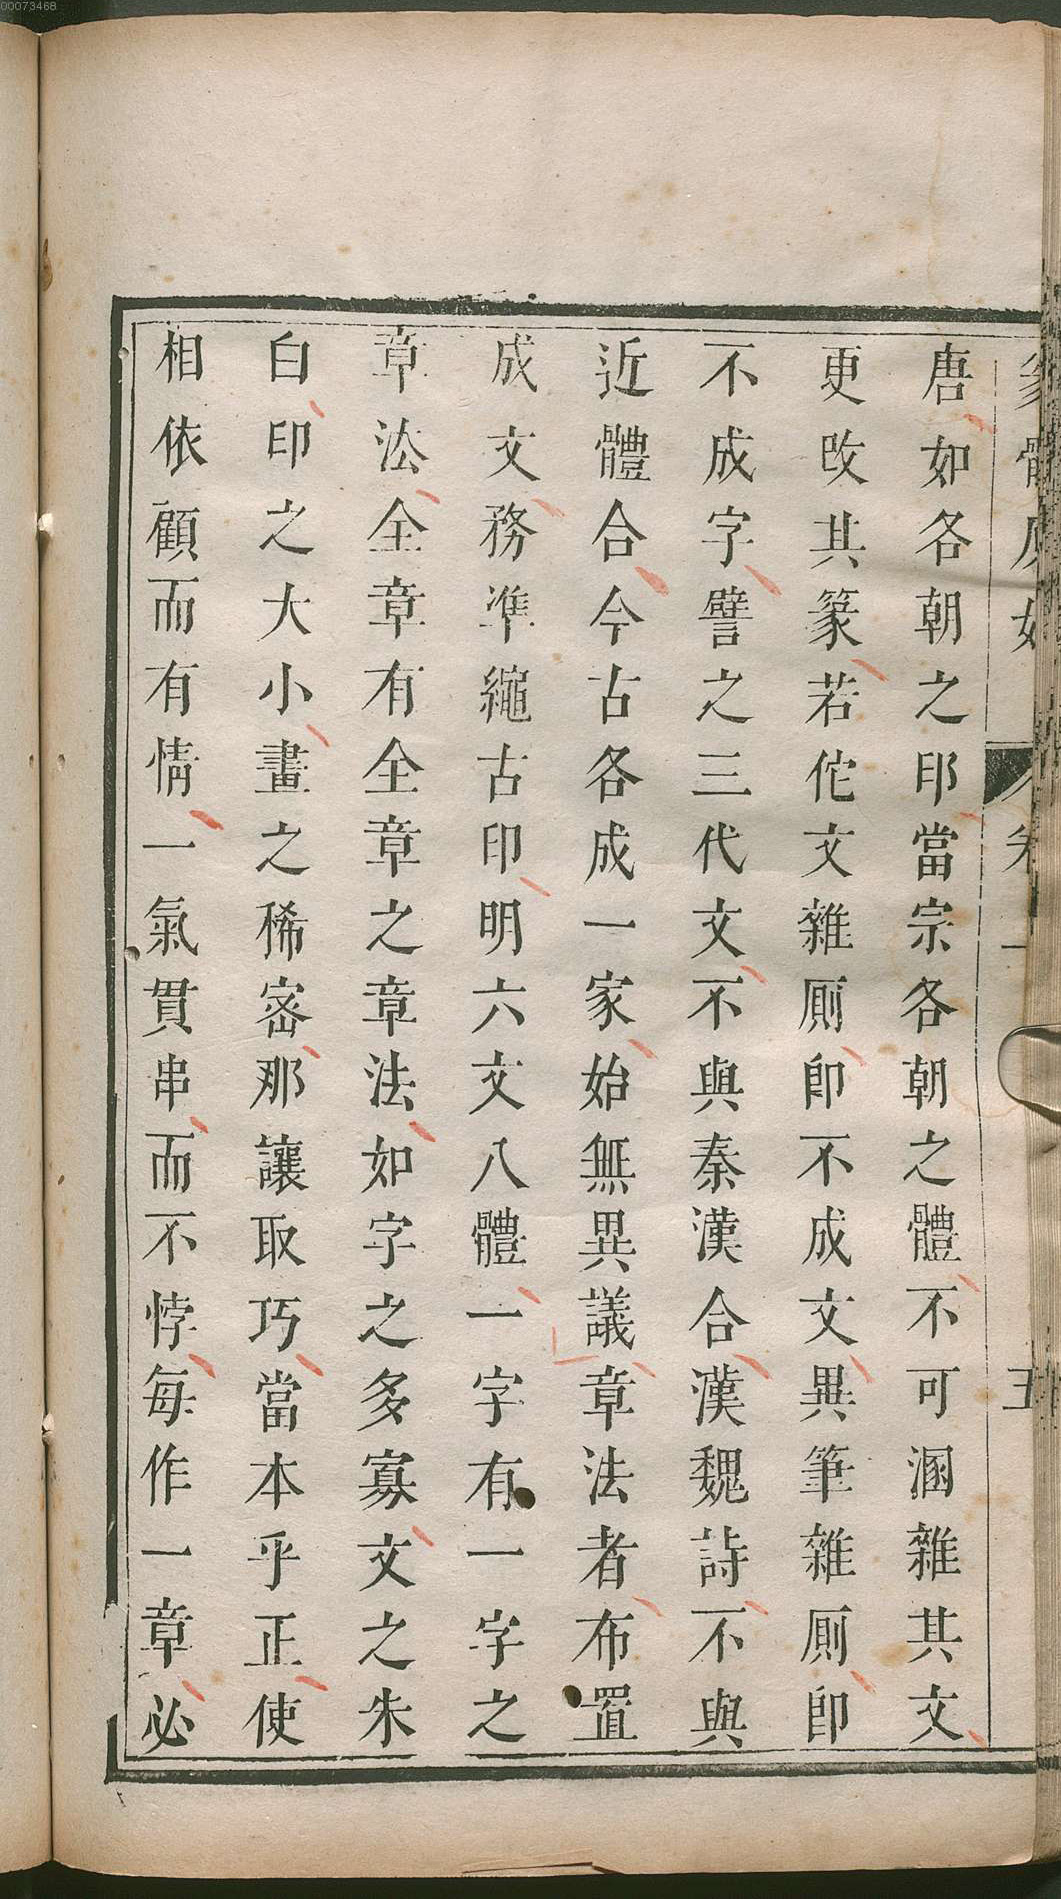 00073468
體
卷一
五
唐如各朝之印當宗各朝之體不可溷雜其文
更改其篆若佗文雜厠卽不成文異筆雜厠卽
不成字譬之三代文不與秦漢合漢魏詩不與
近體合今古各成一家始無異議章法者布置
成文務準繩古印明六文八體一字有一字之
章法全章有全章之章法如字之多寡文之朱
白印之大小畫之稀密那讓取巧當本乎正使
相依顧而有情一氣貫串而不悖每作一章必